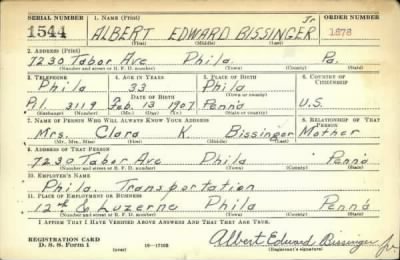 SERIAL NUMBER 1. NAME (Print) ORDER NUMBER
1544 ALBERT EDWARD BISSINGER Jr 1878
(First) (Middle) (Last)
2. ADDRESS (Print)
7230 Tabor Ave Phila. Pa.
(Number and street or R. F. D. number) (Town) (County) (State)
3. TELEPHONE 4. AGE IN YEARS 5. PLACE OF BIRTH 6. COUNTRY OF CITIZENSHIP
Phila 33 Phila
DATE OF BIRTH (Town or county)
Pi. 3119 Feb. 13 1907 Penna U.S.
(Exchange) (Number) (Mo.) (Day) (Yr.) (State or country)
7. NAME OF PERSON WHO WILL ALWAYS KNOW YOUR ADDRESS 8. RELATIONSHIP OF THAT PERSON
Mrs. Clara K. Bissinger Mother
(Mr., Mrs., Miss) (First) (Middle) (Last)
9. ADDRESS OF THAT PERSON
7230 Tabor Ave Phila Penna
(Number and street or R. F. D. number) (Town) (County) (State)
10. EMPLOYER'S NAME
Phila. Transportation
11. PLACE OF EMPLOYMENT OR BUSINESS
12th & Luzerne Phila Penna
(Number and street or R. F. D. number) (Town) (County) (State)
I AFFIRM THAT I HAVE VERIFIED ABOVE ANSWERS AND THAT THEY ARE TRUE.
REGISTRATION CARD
D. S. S. Form 1 (over) Albert Edward Bissinger Jr
(Registrant's signature)